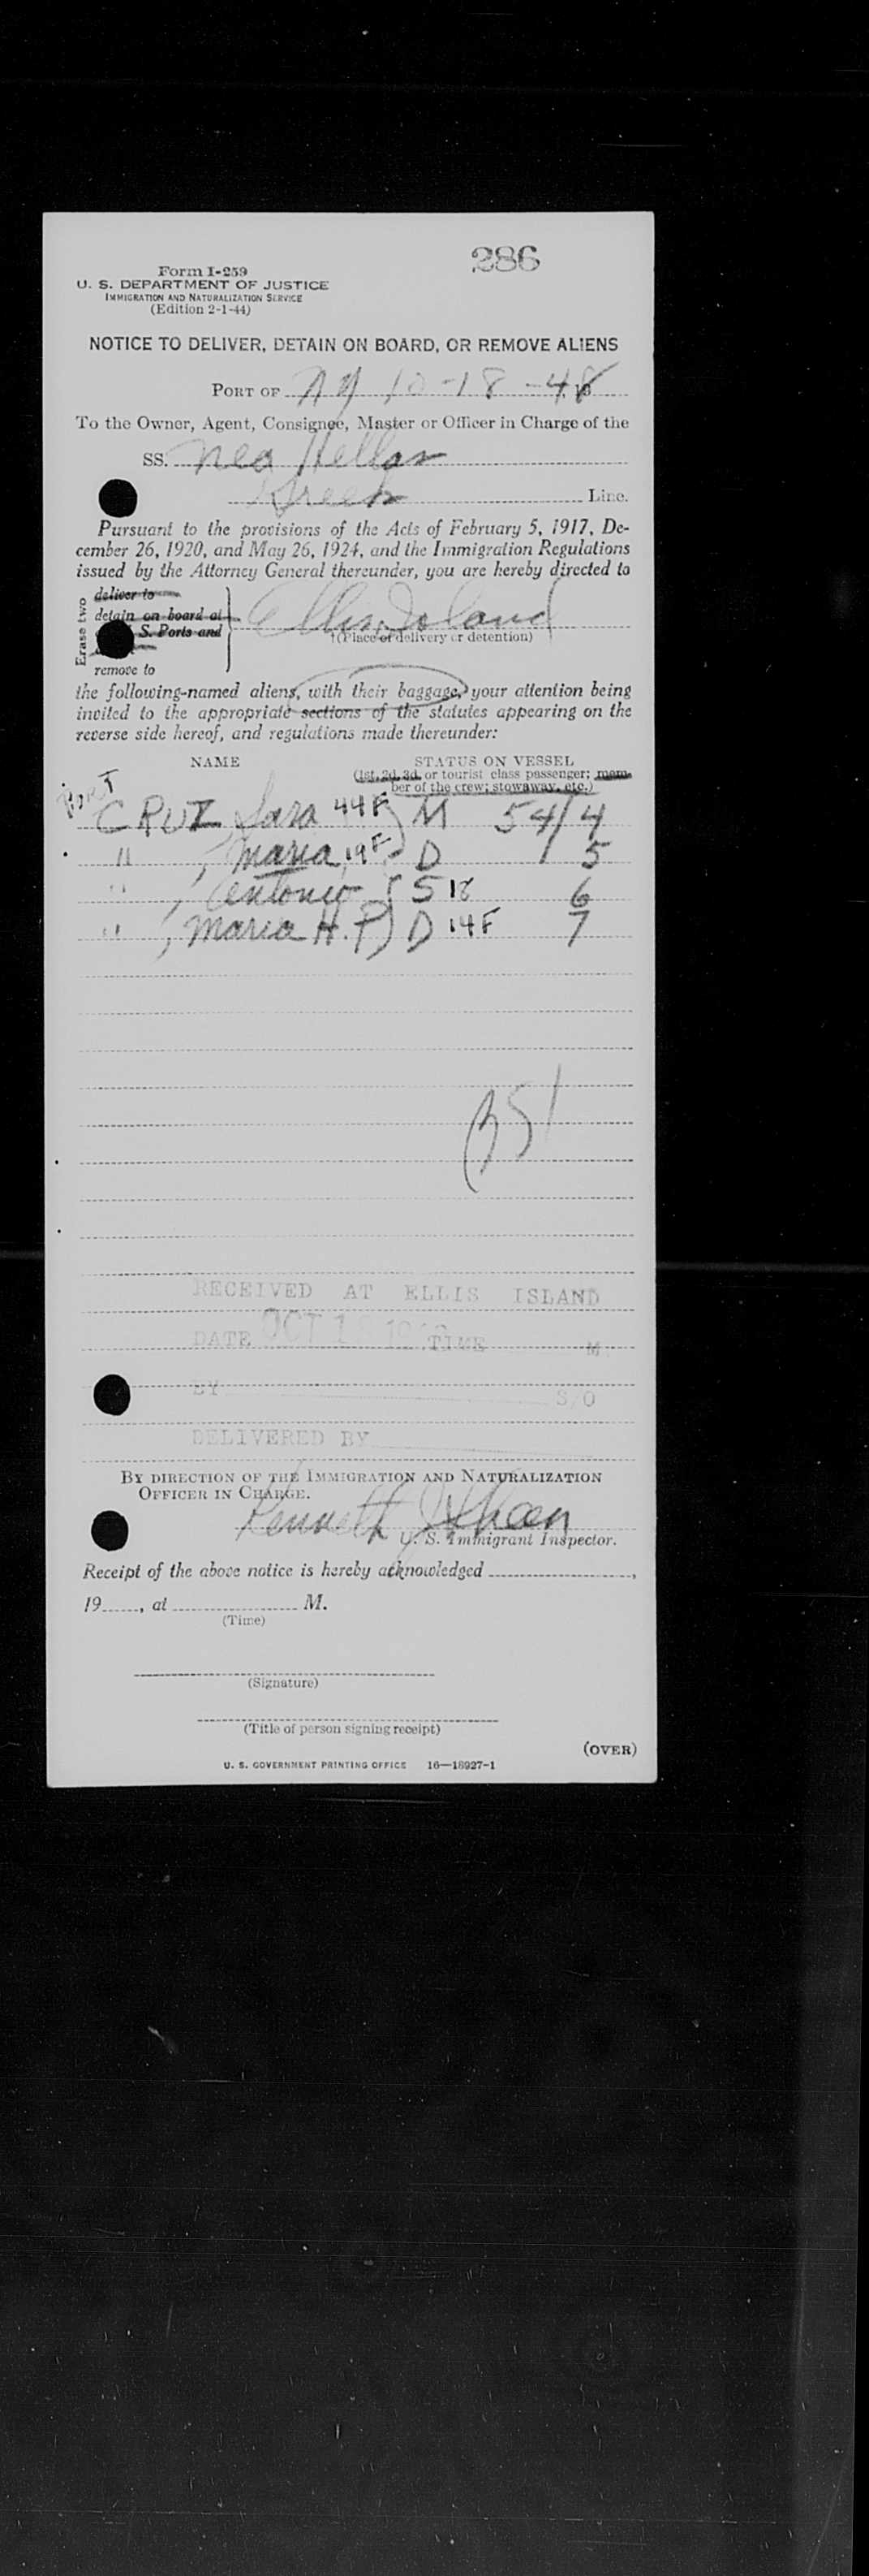 286
Form I-259
U. S. DEPARTMENT OF JUSTICE
IMMIGRATION AND NATURALIZATION SERVICE
(Edition 2-1-44)
NOTICE TO DELIVER, DETAIN ON BOARD, OR REMOVE ALIENS
PORT OF NY 10-18-48
To the Owner, Agent, Consignee, Master or Officer in Charge of the
SS. Nea Hellas
Greek Line.
Pursuant to the provisions of the Acts of February 5, 1917, De-
cember 26, 1920, and May 26, 1924, and the Immigration Regulations
issued by the Attorney General thereunder, you are hereby directed to
Erase two
deliver to
detain on board at
S. Ports and
remove to
Ellis Island
†(Place of delivery or detention)
the following-named aliens, with their baggage, your attention being
invited to the appropriate sections of the statutes appearing on the
reverse side hereof, and regulations made thereunder:
NAME STATUS ON VESSEL
(1st, 2d, 3d, or tourist class passenger; mem-
ber of the crew; stowaway, etc.)
Port
CRUZ Sara 44F M 54/4
" , Maria 19F D 5
" , Antonio S 18 6
" , Maria H. P D 14F 7
RECEIVED AT ELLIS ISLAND
DATE OCT TIME M.
BY S/O
DELIVERED BY
BY DIRECTION OF THE IMMIGRATION AND NATURALIZATION
OFFICER IN CHARGE.
Kenneth
U. S. Immigrant Inspector.
Receipt of the above notice is hereby acknowledged ,
19 , at M.
(Time)
(Signature)
(Title of person signing receipt)
(OVER)
U. S. GOVERNMENT PRINTING OFFICE 16—18927-1